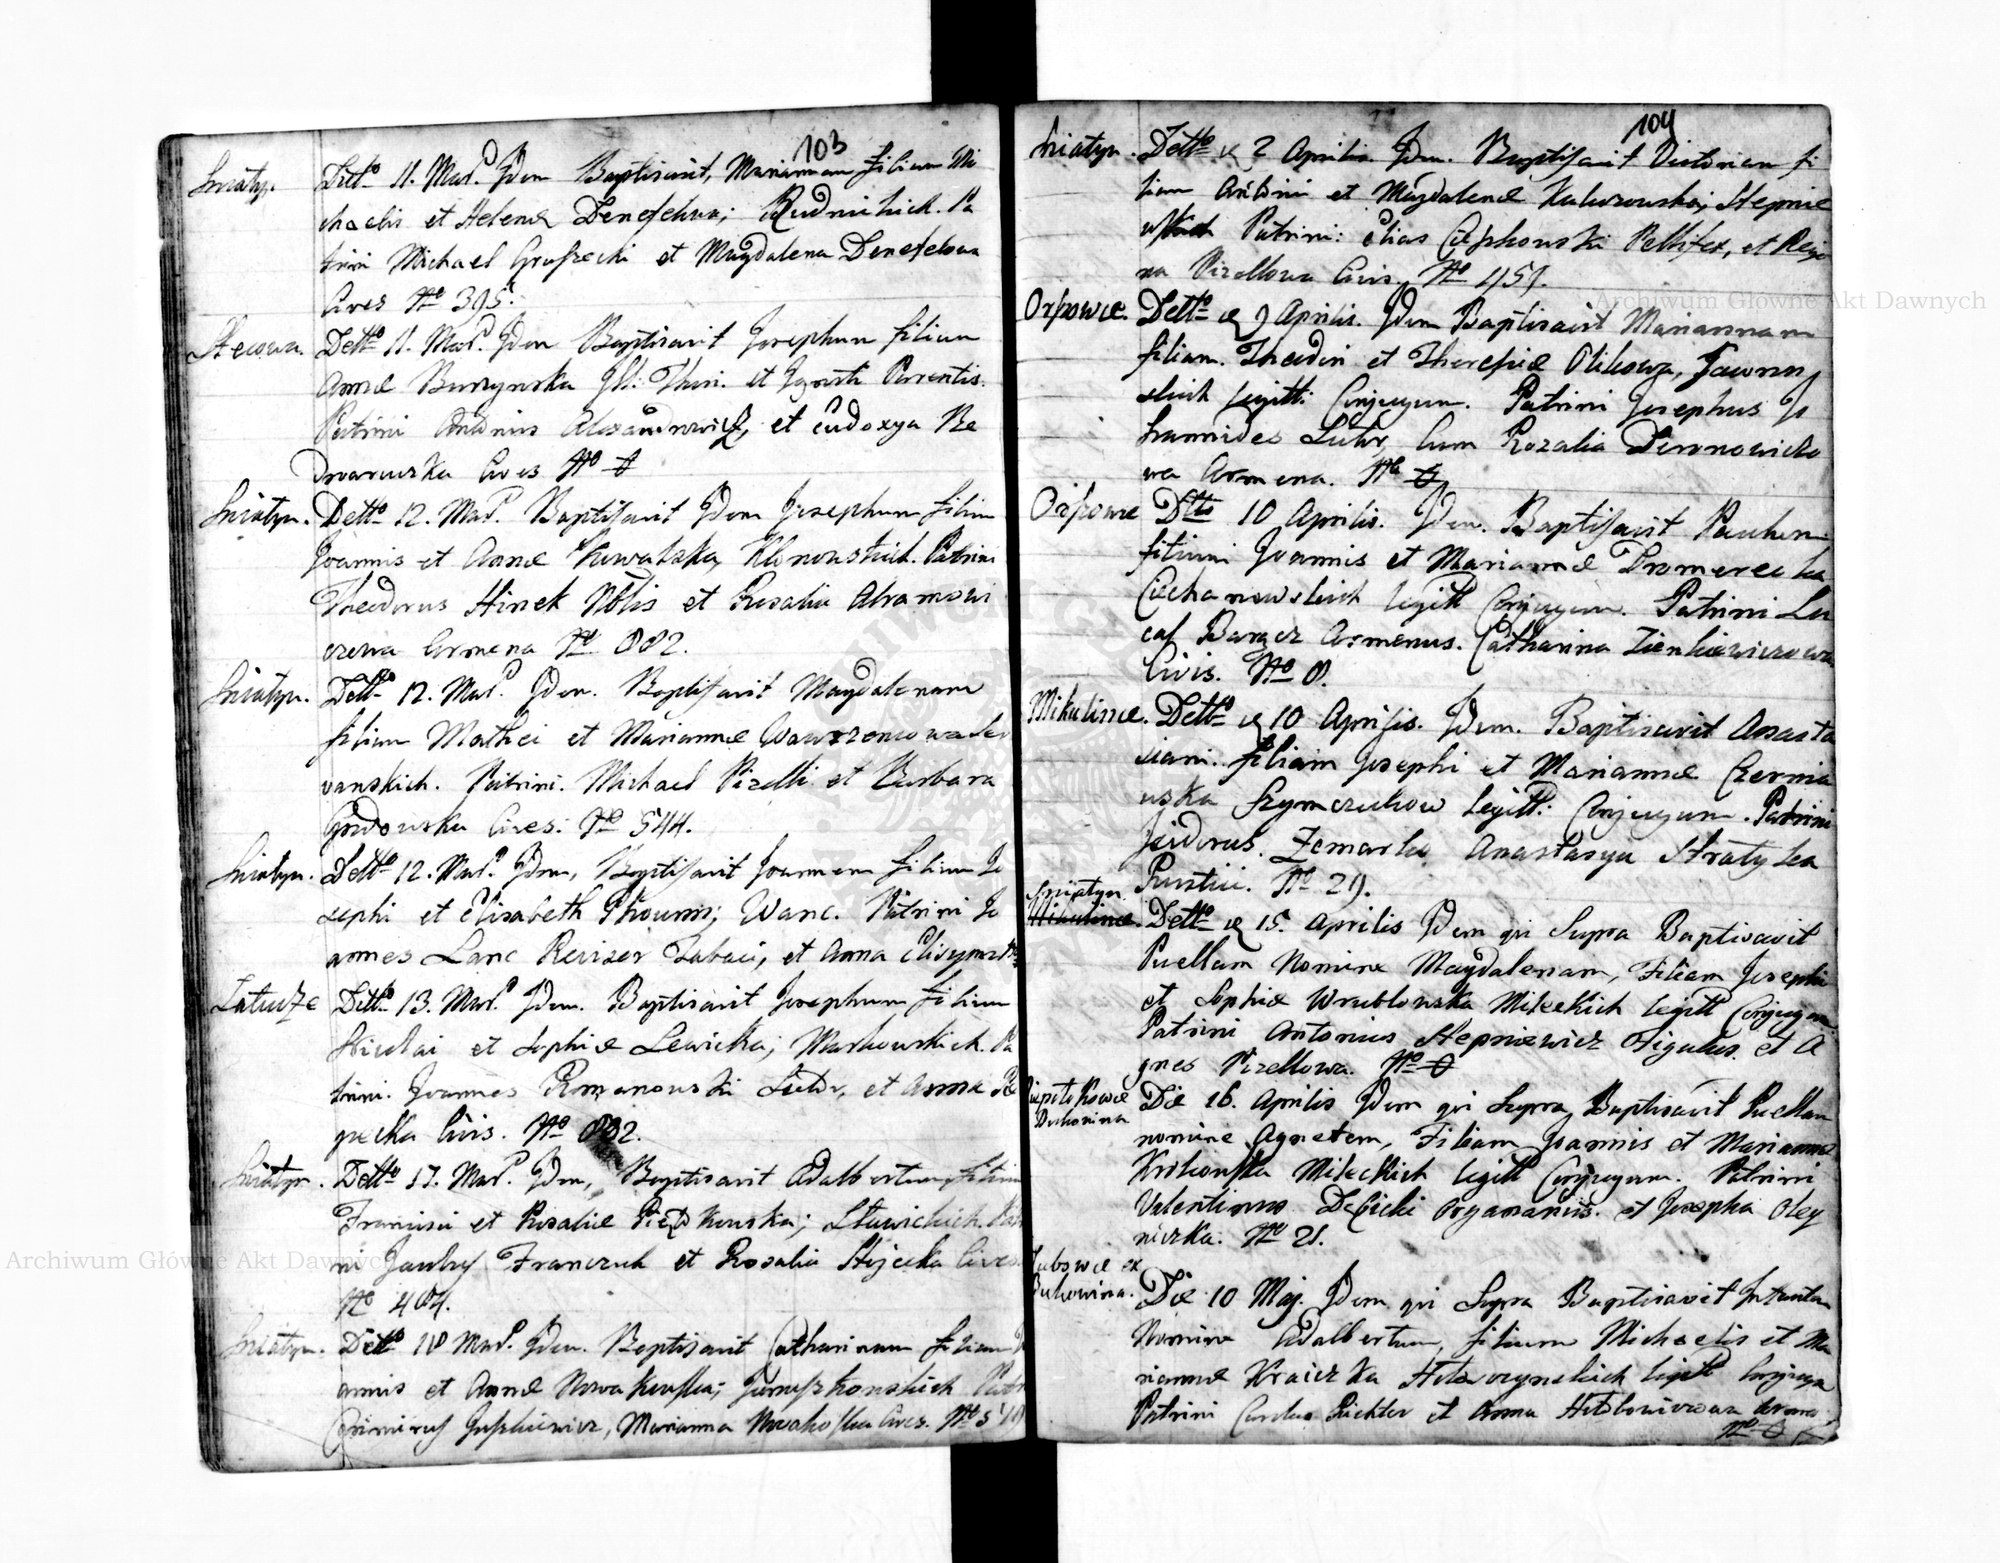 103
Sniatyn. Detto 11. Mart. Idem Baptisavit, Mariannam filiam Mi
chaelis et Helenæ Denefelwa; Rudnichich. Pa
trini Michael Gruszecki et Magdalena Denefelowa
Cives No 395.
Stecowa. Detto 11. Mart. Idem Baptisavit Josephum filium
Annæ Burzynska Ill: Thori. et Ignoti Parentis.
Patrini Antonius Alexandrowicz, et Eudoxya Re
dwaruzka Cives No 0
Sniatyn. Detto 12. Mart. Baptisavit Idem Josephum filium
Joannis et Annæ Kowalska, Klonowskich. Patrini
Theodorus Hinek Nblis et Rosalia Abramowi
czowa Armena No 882.
Sniatyn. Detto 12. Mart. Idem. Baptisavit Magdalenam
filiam Mathei et Mariannæ Wawrzeniowa
vanskich. Patrini. Michael Pizelli et Barbara
Gowdowska Cives. No 544.
Sniatyn. Detto 12. Mart. Idem, Baptisavit Joannem filium Jo
sephi et Elisabeth Wanc. Patrini Jo
annes Lanc Revizer Tabaci, et Anna
Zatucze Detto 13. Mart. Idem. Baptisavit Josephum filium
Nicolai et Sophiæ Lewicka; Markowskich. Pa
trini. Joannes Romanowski Sutor, et Anna Re
pecka Civis. No 882.
Sniatyn. Detto 17. Mart. Idem, Baptisavit Adalbertum filium
Francisci et Rosaliæ Piędkowska; Patri
ni Franczuk et Rosalia Hojecka Cives
No 404.
Sniatyn. Detto 18 Mart. Idem. Baptisavit Catharinam filiam
annis et Annæ Nowakowska; Januszkowskich Patri
Casimirus Juszkiewicz, Marianna Cives. No
104
Sniatyn. Detto 2 Aprilis. Idem. Baptisavit Victoriam fi
liam Antoni et Magdalenæ Kalurowska, Stepnie
wskich Patrini: Elias Pellifex, et Regi
na Pizellowa Civis. No 459.
Orszowce. Detto 9 Aprilis. Idem Baptisavit Mariannam
filiam. Theodori et Theresiæ Olikowa, Jawron
skich legitt: Conjugum. Patrini Josephus
Sutor, Cum Rozalia Deronowiczo
wa Armena. No 0
Orszowce Dtto 10 Aprilis. Idem. Baptisavit Paulum
filium Joannis et Mariannæ Dromerecka
Ciechanowskich legitt Conjugum. Patrini Lu
cas Baracz Armenus. Catharina Zienkiewiczowa
Civis. No 8.
Mikulince. Detto 10 Aprilis. Idem. Baptisavit Anasta
siam. filiam Josephi et Mariannæ Czernia
wska Szymczukow legitt: Conjugum. Patrini
Isidorus. Zemarka Anastasya Stratyka
Rustici. No 29.
Sniatyn
Mikulince. Detto 15. Aprilis Idem qui Supra Baptisavit
Puellam Nomine Magdalenam, Filiam Josephi
et Sophiæ Wrublowska Mileckich legitt Conjugum
Patrini Antonius Stepniewicz Figulus. et A
gnes Pizellowa. No 0
Bukowina Die 16. Aprilis Idem qui Supra, Baptisavit Puellam
nomine Agnetem, Filiam Joannis et Mariannæ
Krikowska Mileckich legitt Conjugum. Patrini
Valentinus Debicki Organarius. et Josepha Oley
niczka. No 21.
ex
Bukowina. Die 10 Maj. Idem qui Supra Baptisavit Infantem
Nomine Adalbertum, filium Michaelis et Ma
riannæ Kraiczka legitt Conjugu
Patrini Carolus Richter et Anna Armena
No 0